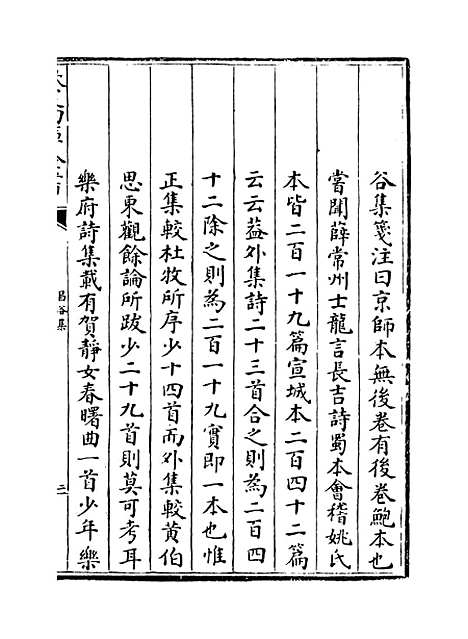 谷集箋注曰京師本無後卷有後卷鮑本也
嘗聞薛常州士龍言長吉詩蜀本會稽姚氏
本皆二百一十九篇宣城本二百四十二篇
云云葢外集詩二十三首合之則為二百四
十二除之則為二百一十九實即一本也惟
正集較杜牧所序少十四首而外集較黄伯
思東觀餘論所跋少二十九首則莫可考耳
樂府詩集載有賀靜女春曙曲一首少年樂
昌谷集
三